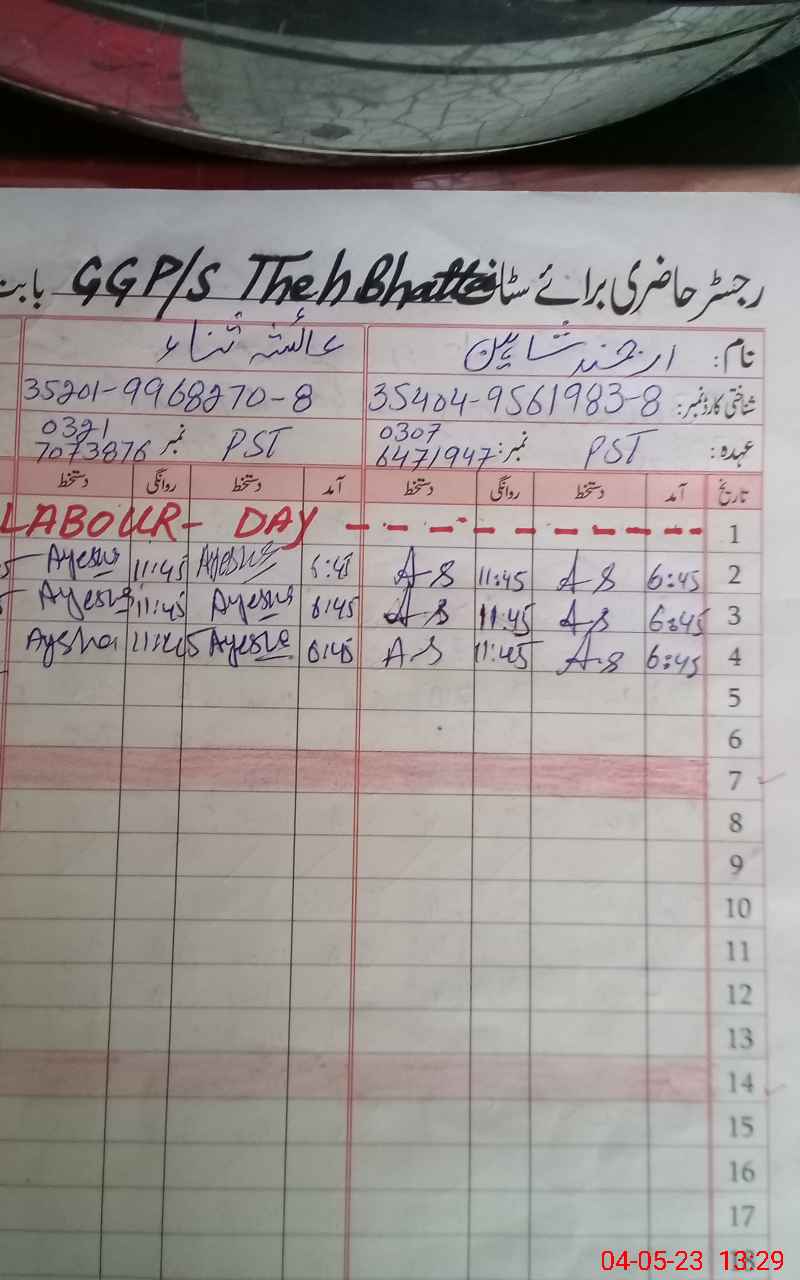 رجسٹر حاضری برائے سٹاف GGP/S Theh Bhatta بابت
نام: ارجمند شاہین عائشہ ثناء
شناختی کارڈ نمبر: 35404-9561983-8 35201-9968270-8
عہدہ: PST نمبر: 0307 6471947 PST نمبر 0321 7073876
تاریخ آمد دستخط روانگی دستخط آمد دستخط روانگی دستخط
1 LABOUR- DAY - - - - - - - - -
2 6:45 AS 11:45 AS 6:45 Ayesha 11:45 Ayesha
3 6:45 AS 11:45 AS 6:45 Ayesha 11:45 Ayesha
4 6:45 A-S 11:45 AS 6:45 Ayesha 11:45 Aysha
5
6
7
8
9
10
11
12
13
14
15
16
17
18
04-05-23 13:29